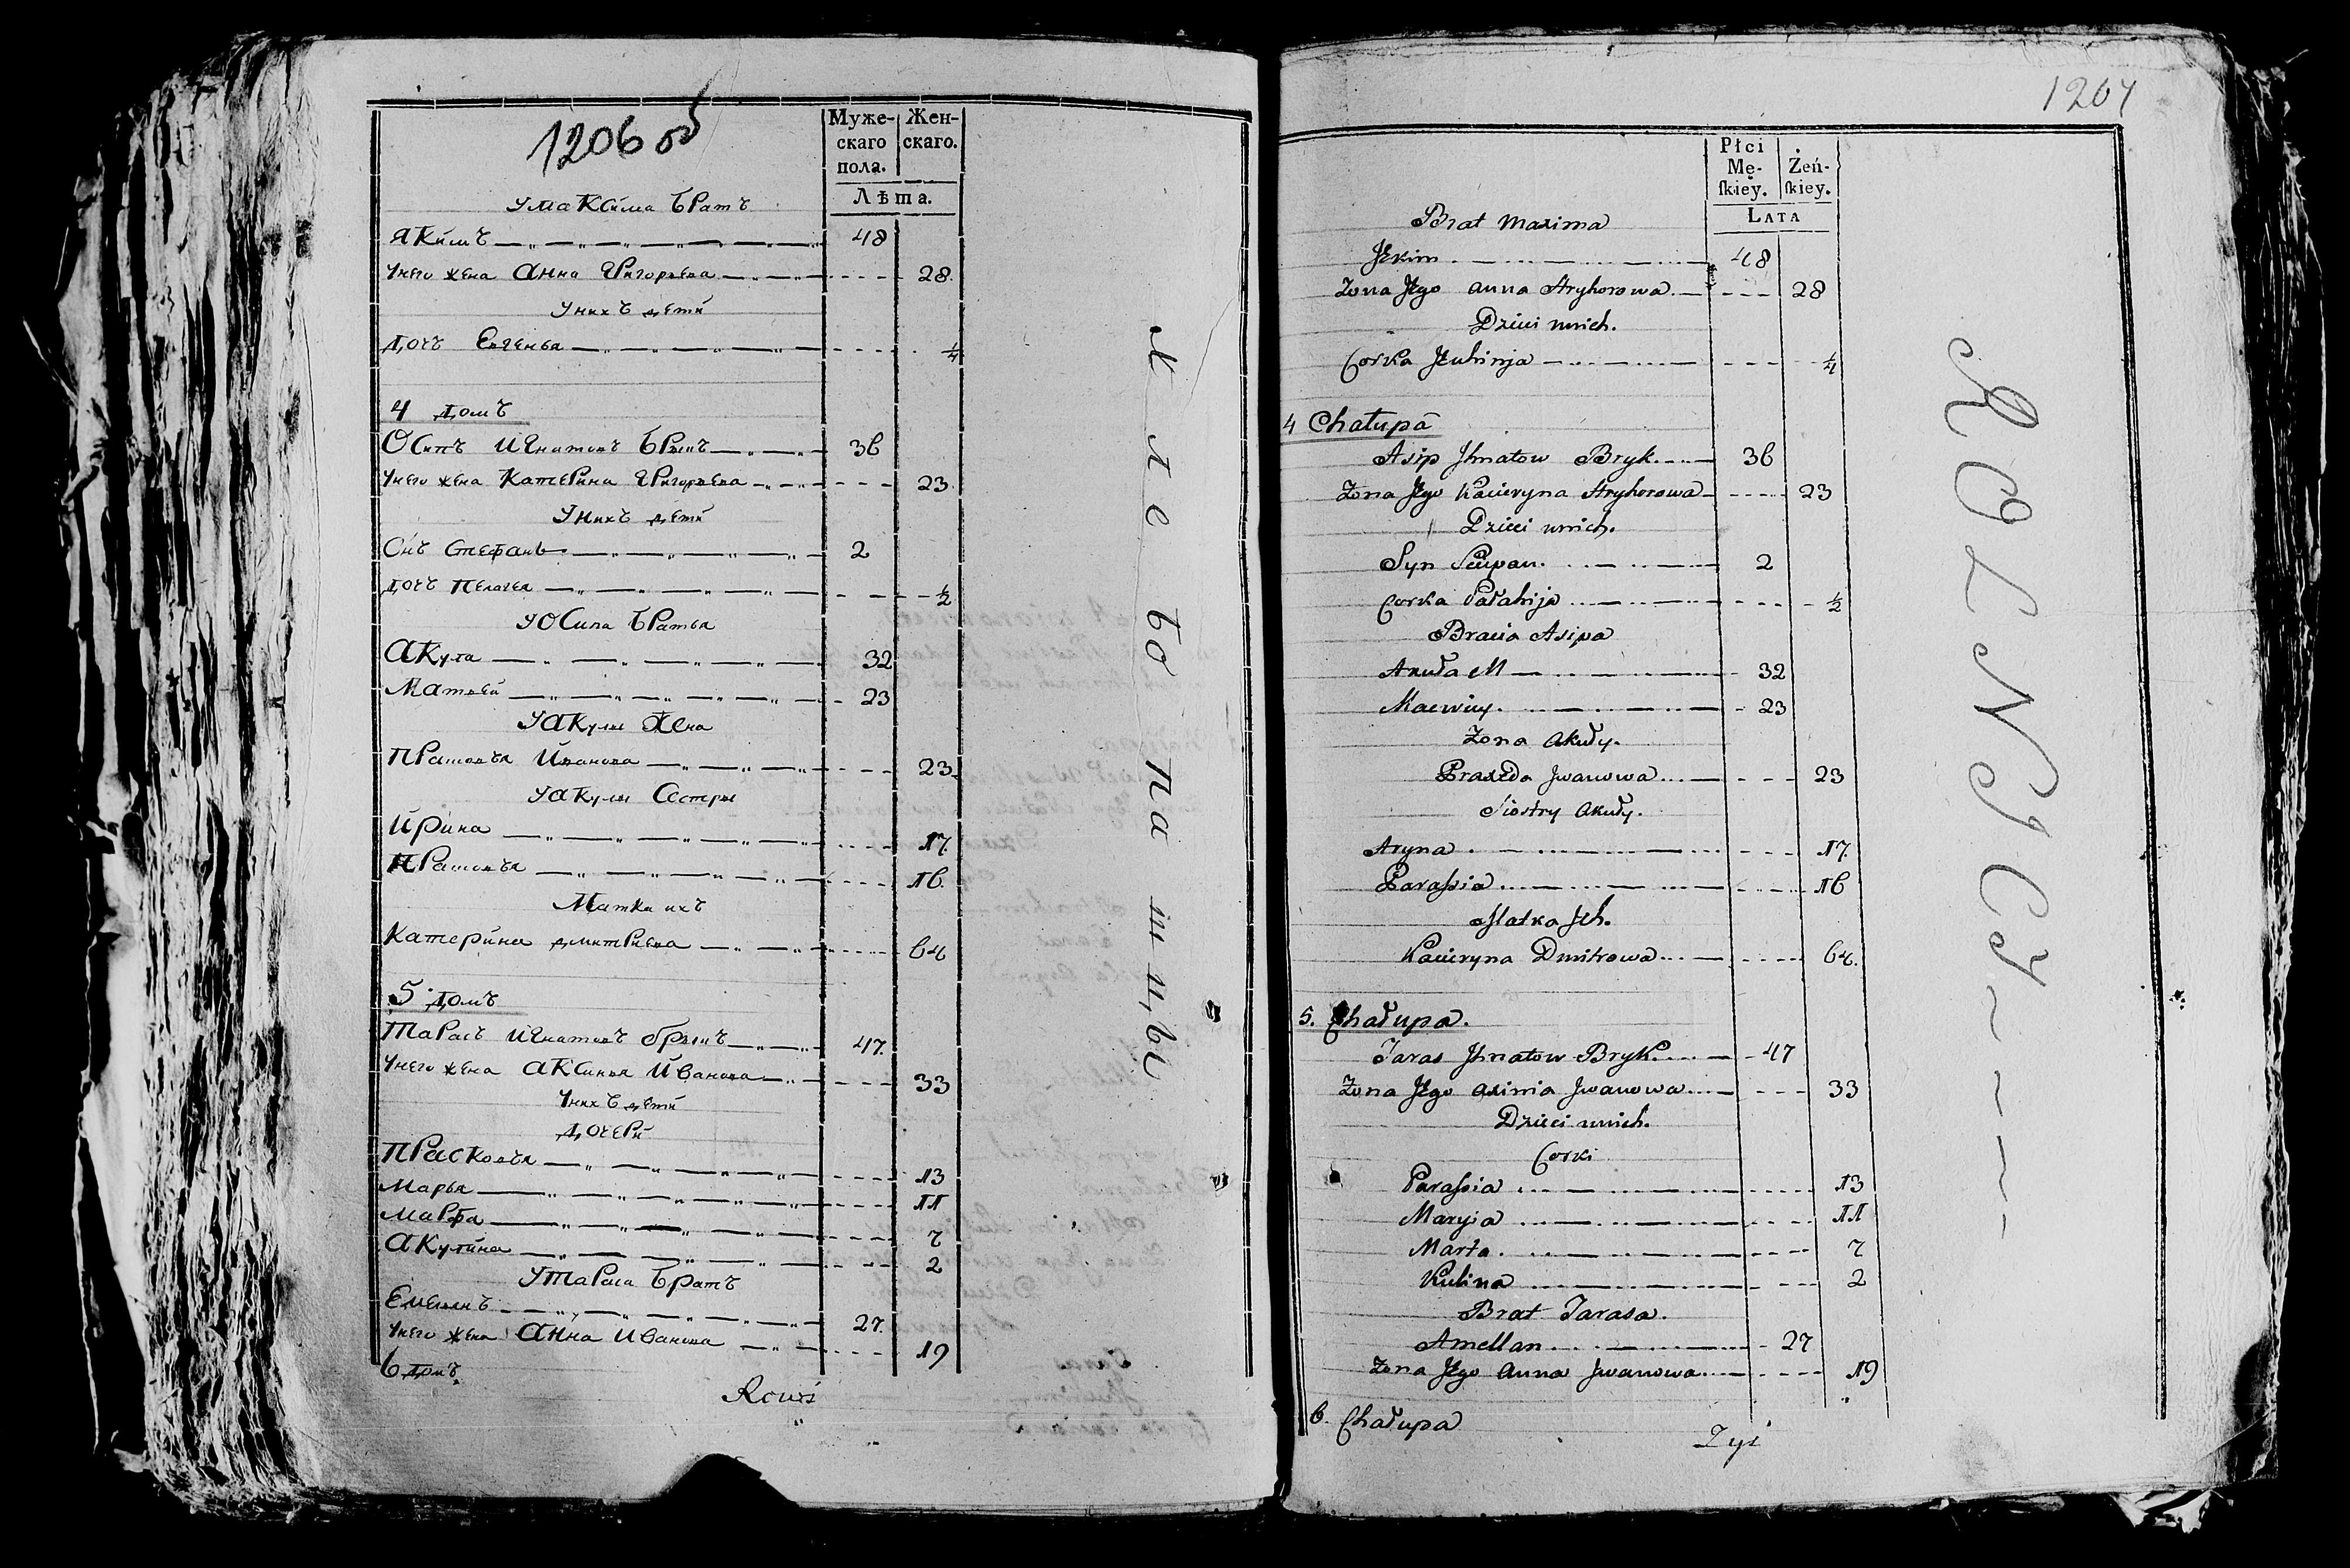 1206 об
Муже-
скаго
пола.
Жен-
скаго.
Лѣта.
У Максима братъ
Якимъ 48
У него жена Анна Григорьева 28.
У нихъ дети
Дочь Евгенья 1/4
4 домъ
Осипъ Игнатовъ Брыкъ 36
У него жена Катерина Григорьева 23.
У нихъ дети
Сынъ Стефанъ 2
Дочь Пелагея 1/2
У Осипа братья
Акула 32
Матвей 23
У Акулы жена
Прасковья Иванова 23
У Акулы сестры
Ирина 17.
Прасковья 16.
Матка ихъ
Катерина Дмитриева 64
5 домъ
Тарасъ Игнатовъ Брыкъ 47.
У него жена Аксинья Иванова 33
У нихъ дети
дочери
Прасковья 13
Марья 11
Марфа 7
Акулина 2
У Тараса братъ
Емельянъ 27.
У него жена Анна Иванова 19
6 домъ
Хлебопашцы
1207
Płci
Mę-
ſkiey.
Żeń-
ſkiey.
LATA
Brat Maxima
Jekim 48
Żona Jego Anna Hryhorowa 28
Dzieci unich.
Corka Jeuhinja 1/4
4 Chałupa
Asip Jhnatow Bryk 36
Żona Jego Kacieryna Hryhorowa 23
Dzieci unich.
Syn Sciepan 2
Corka Pałahija 1/2
Bracia Asipa
Akuła 32
Maciwiey 23
Żona Akuły.
Praxeda Jwanowa 23
Siostry Akuły.
Aryna 17.
Paraſsia 16
Matka Jch.
Kacieryna Dmitrowa 64.
5. Chałupa.
Taras Jhnatow Bryk 47
Żona Jego Axinia Jwanowa 33
Dzieci unich.
Corki
Paraſsia 13
Maryia 11
Marta 7
Kulina 2
Brat Tarasa.
Amellan 27
Żona Jego Anna Jwanowa 19
6. Chałupa
ROLNICY